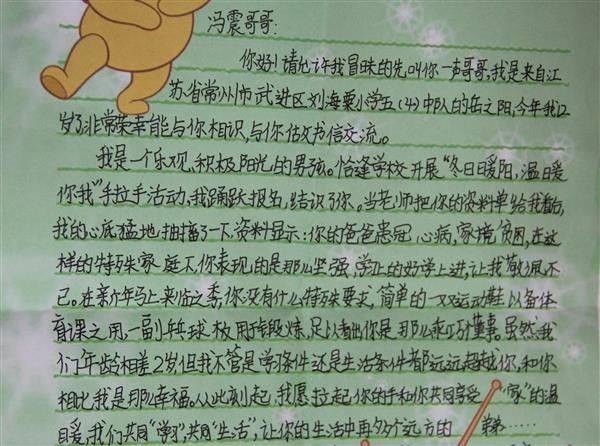 冯震哥哥:
你好!请允许我冒昧的先叫你一声哥哥,我是来自江
苏省常州市武进区刘海粟小学五(4)中队的岳之阳,今年我12
岁了。非常荣幸能与你相识,与你做书信交流。
我是一个乐观、积极、阳光的男孩。恰逢学校开展“冬日暖阳,温暖
你我”手拉手活动,我踊跃报名,结识了你。当老师把你的资料单给我看后,
我的心底猛地抽搐了一下,资料显示:你的爸爸患冠心病,家境贫困,在这
样的特殊家庭下,你表现的是那么坚强、学习的好学上进,让我敬佩不
已。在新年马上来临之季,你没有什么特殊要求,简单的一双运动鞋以备体
育课之用,一副乒乓球板用于锻炼,足以看出你是那么乖巧懂事。虽然我
们年龄相差2岁,但我不管是学习条件还是生活条件都远远超越你,和你
相比我是那么幸福。从此刻起,我愿拉起你的手和你共同享受“家”的温
暖,我们共同“学习”,共同“生活”,让你的生活中再多个远方的弟弟……